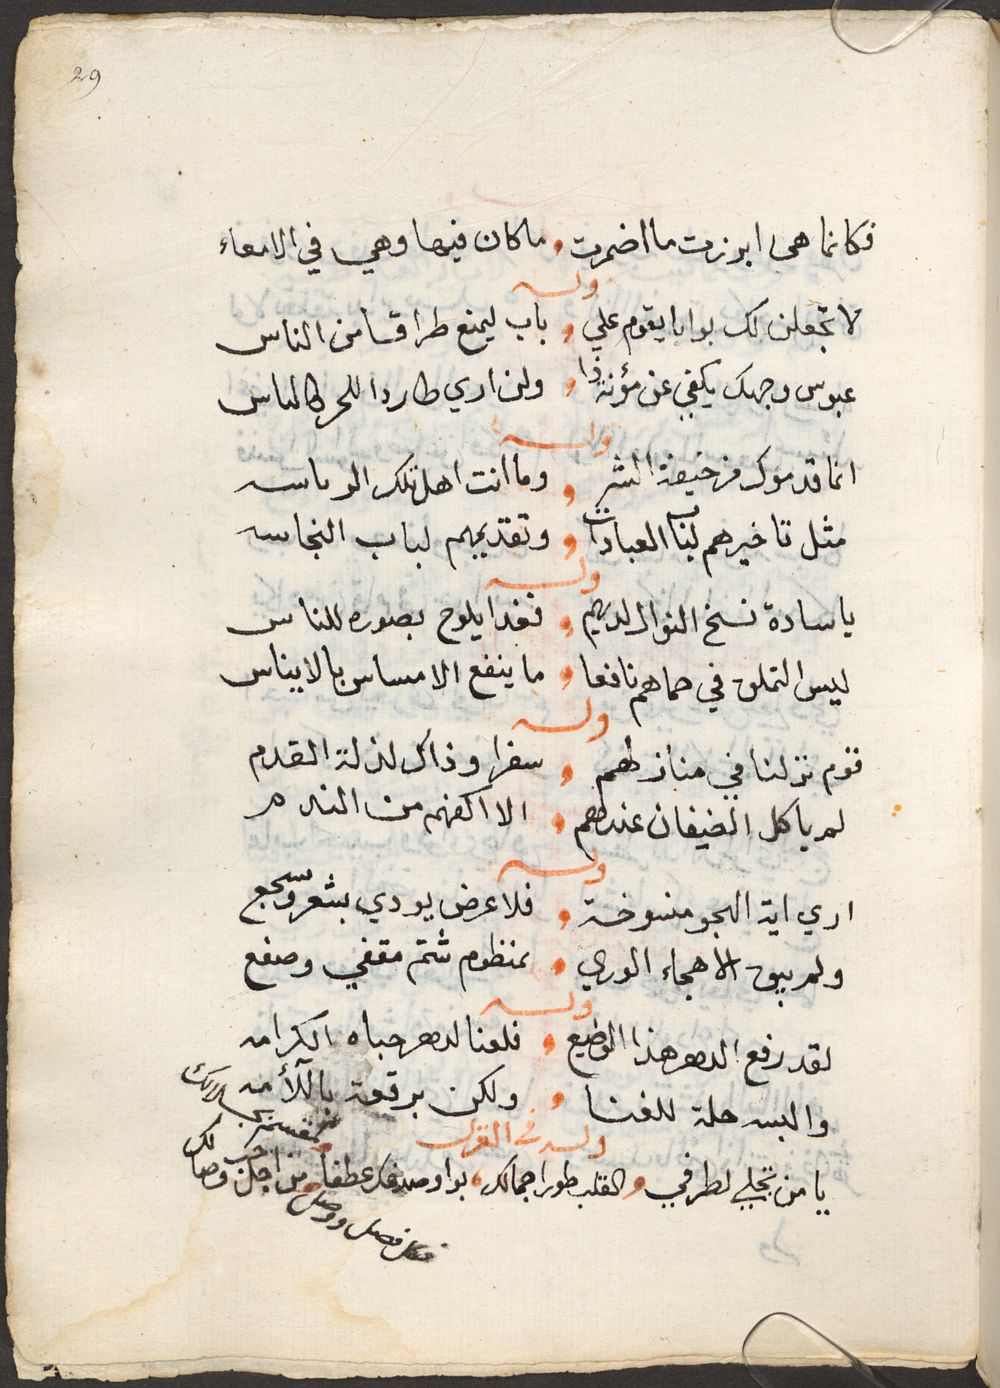 29
فكانما هي ابرزت ما اضمرت ، ما كان فيها وهي في الامعاء
وله
لا تجعلن لك بوابا يقوم علي ، باب ليمنع طراقا من الناس
عبوس وجهك يكفي عن مؤنة ذا ، ولن اري طاردا للحر كالباس
وله
انما قدموك من خيفة الشر ، وما انت اهل تلك الرياسه
مثل تاخيرهم لباب العبادات ، وتقديمهم لباب النجاسه
وله
يا سادة نسخ النوال لديهم ، فغدا يلوح بصوره للناس
ليس التملق في حماهم نافعا ، ما ينفع الامساس بالايناس
وله
قوم نزلنا في منازلهم ، سفرا وذاك لذلة القدم
لم ياكل الضيفان عندهم ، الا اكفهم من الندم
وله
اري اية الهجو منسوخة ، فلا عرض يودي بشعر وسجع
ولم يبق الا هجاء الوري ، بمنظوم شتم مقفي وصفع
وله
لقد رفع الدهر هذا الوضيع ، فلعنا لدهر حباه الكرامه
والبسه حلة للغنا ، ولكن برقعة باللأمه
وله في الغزل
يا من تجلي لطرفي ، والقلب طورا جمالك ، من اجل وصالك